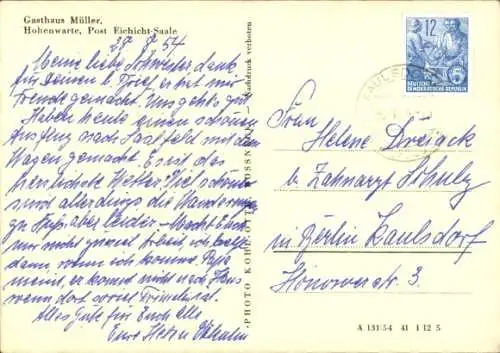 Gasthaus Müller,
Hohenwarte, Post Eichicht-Saale
28. 8. 54
Meine liebe Schwester dank
für Deinen l. Brief er hat mir
Freude gemacht. Uns geht's gut.
Haben heute einen schönen
Ausflug nach Saalfeld mit dem
Wagen gemacht. Es ist das
herrlichste Wetter. Viel schöner
sind allerdings die Wanderungen
zu Fuß, aber leider. Macht Euch
nur nicht zuviel Arbeit, ich helfe
dann wenn ich komme. Papa
meint, er kommt nicht nach Haus
wenn dort soviel
Alles Gute für Euch alle
Eure
PHOTO KÖHLER PÖSSNECK Nachdruck verboten
12
DEUTSCHE
DEMOKRATISCHE REPUBLIK
Frau
Helene Dreijack
b. Zahnarzt Schulz
in Berlin Kaulsdorf
Hönower str. 3.
A 131/54 41 1 12 5